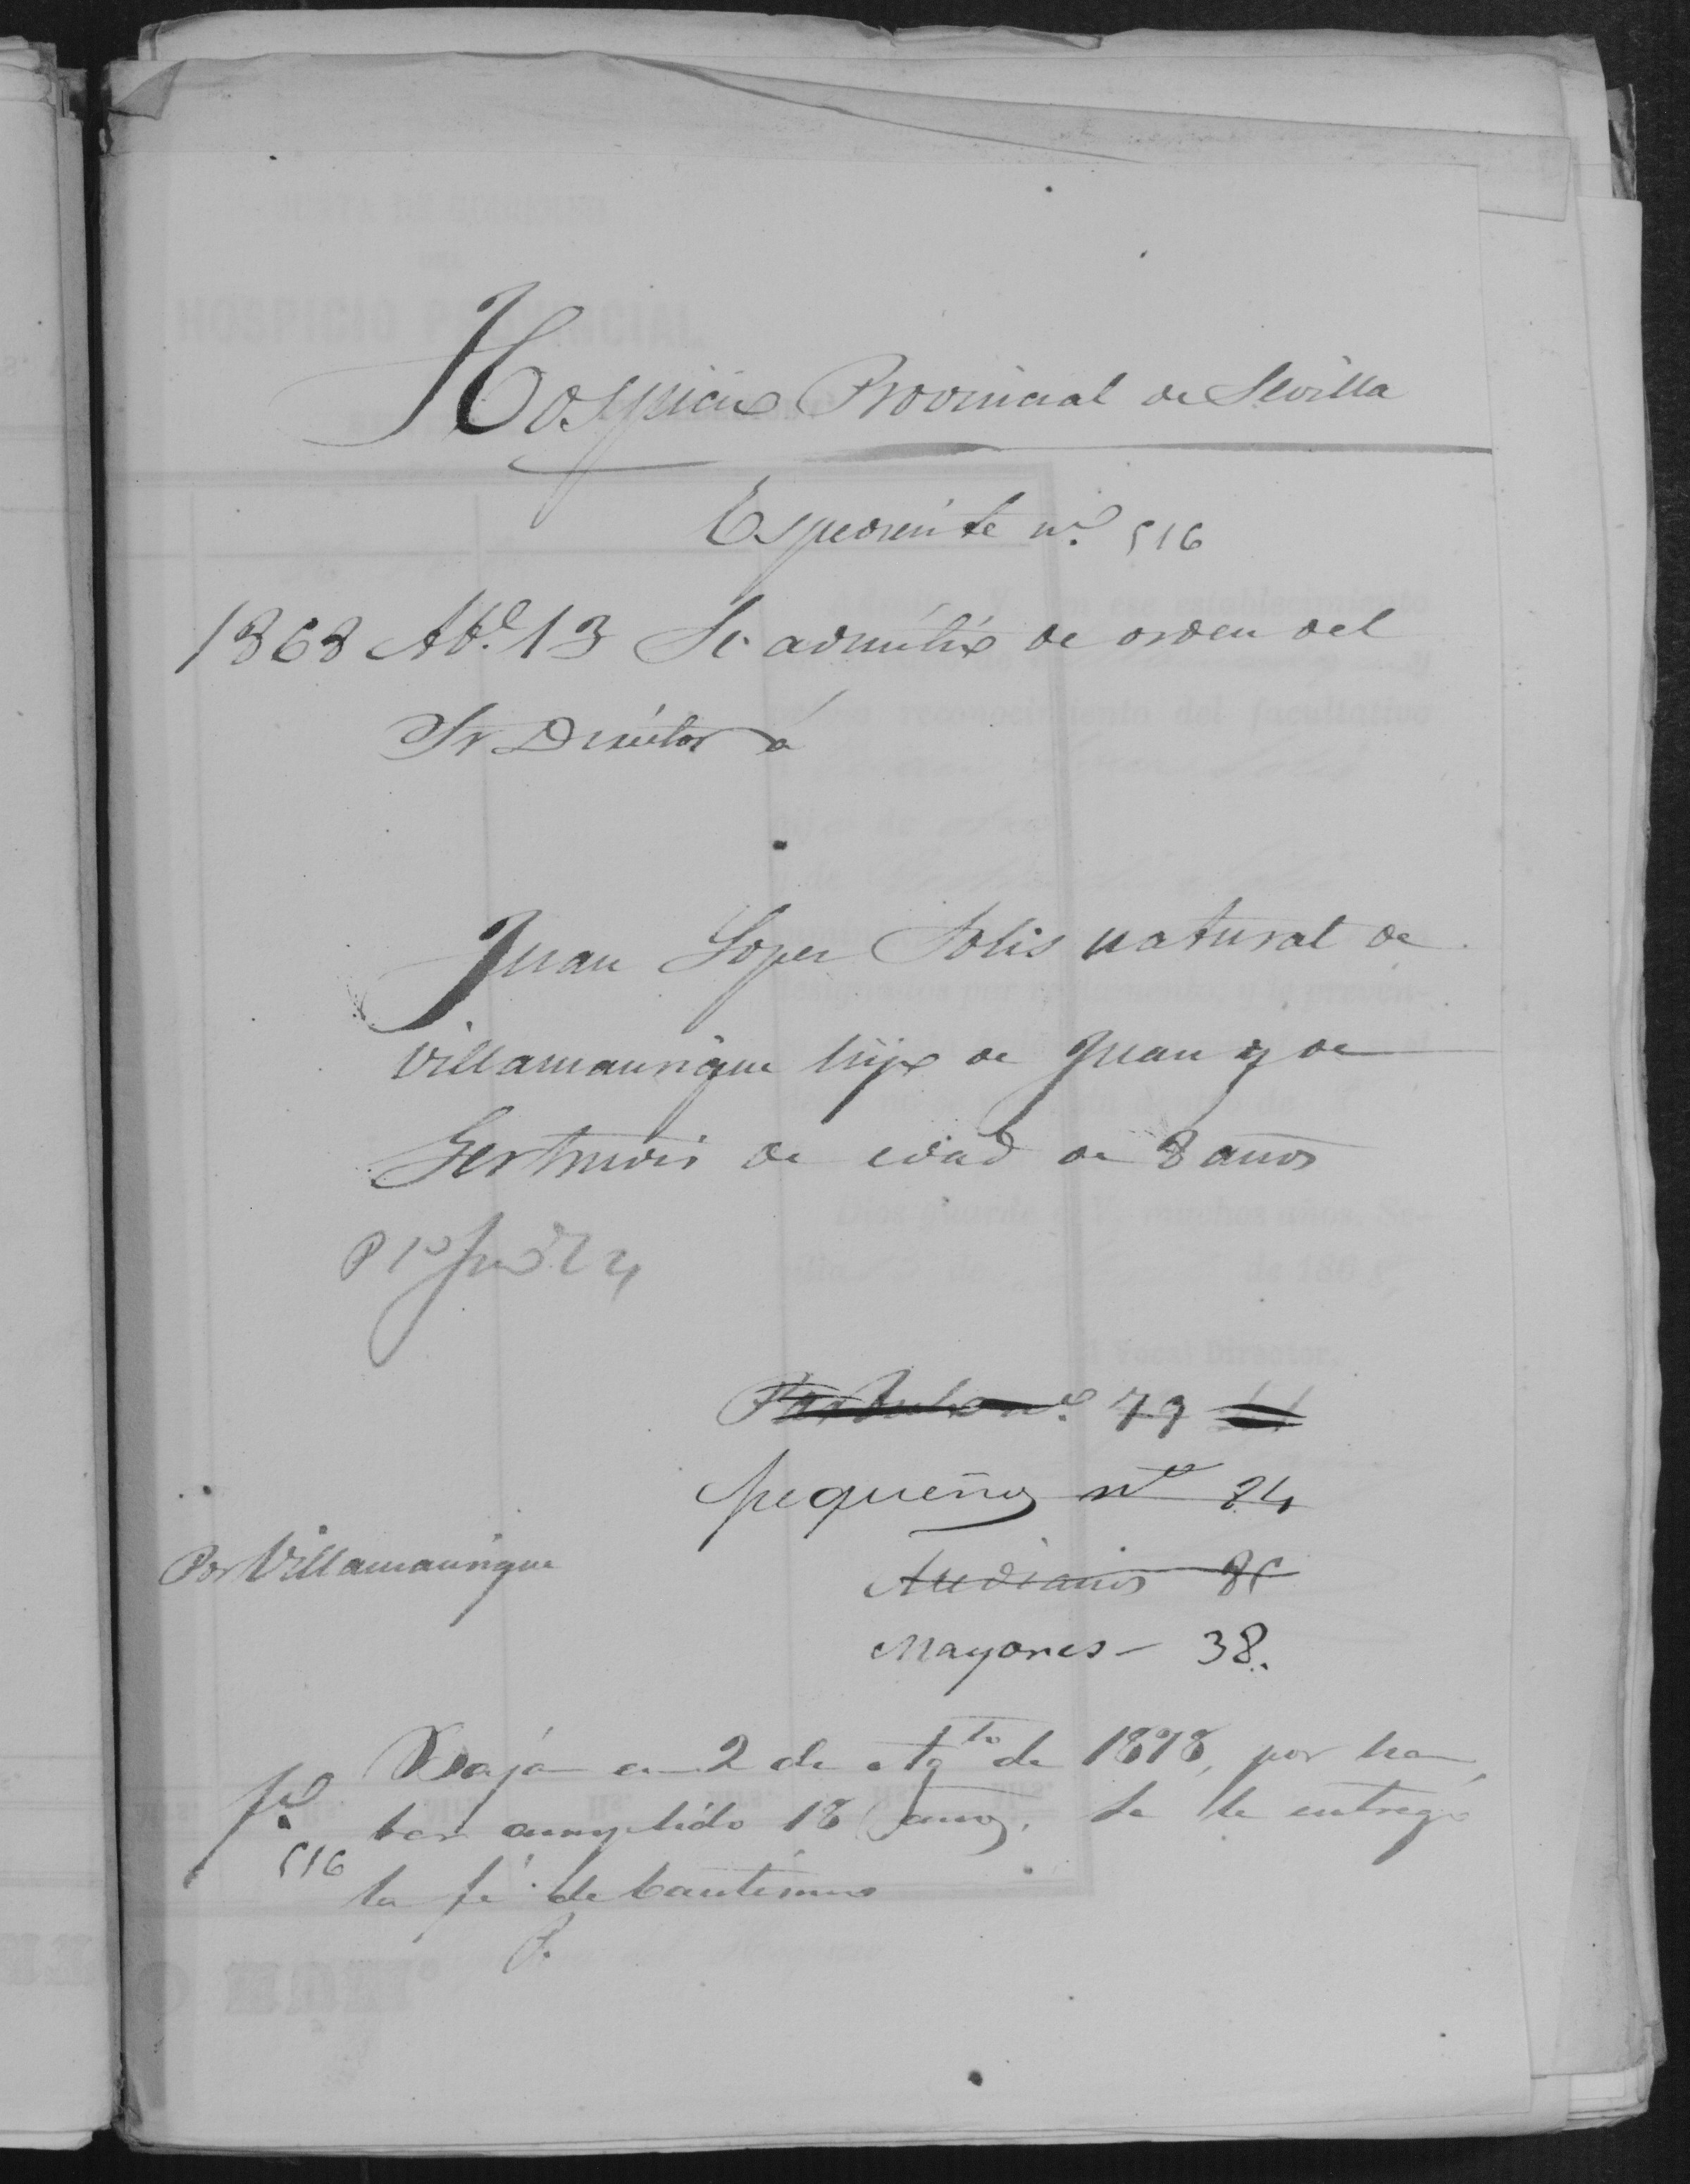 Hospicio Provincial de Sevilla
Espediente nº 516
1868 Abl. 13 Se admitió de orden del
Sr Director á
Juan Lopez Solis natural de
Villamanrique hijo de Juan y de
Gertrudis de edad de 8 años
Parbulos nº 79
pequeños nº 24
Por Villamanrique
Medianos 85
Mayores - 38.
Baja en 2 de Agto de 1878, por ha
ber cumplido 18 años, se le entregó
516
la fé de bautismo